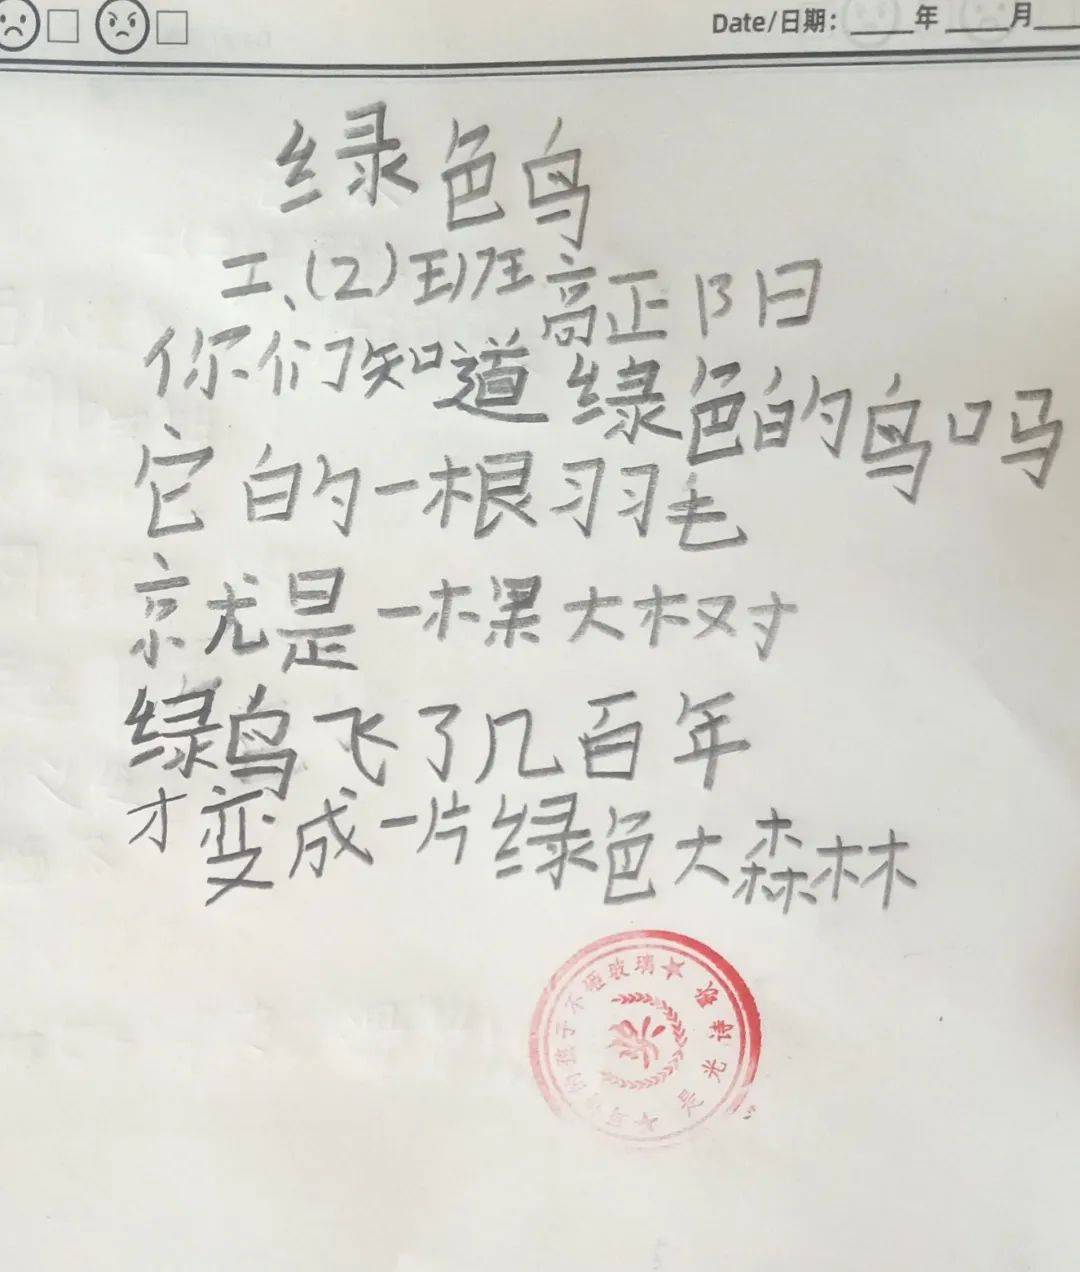 Date/日期: ____年 ____月____
绿色鸟
二、(2)班 高正阳
你们知道绿色的鸟吗
它的一根羽毛
就是一棵大树
绿鸟飞了几百年
才变成一片绿色大森林
孩子不砸玻璃
是光诗